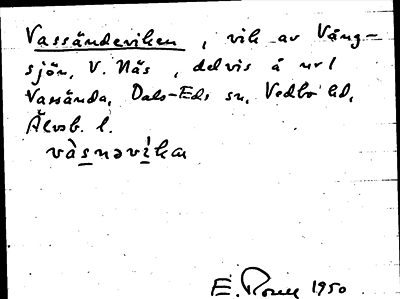 Vassändeviken, vik av Väng-
sjön, V. Näs, delvis å url
Vassända, Dals-Eds sn, Vedbo hd,
Älvsb. l.
vàsnəvíkan
E. 1950